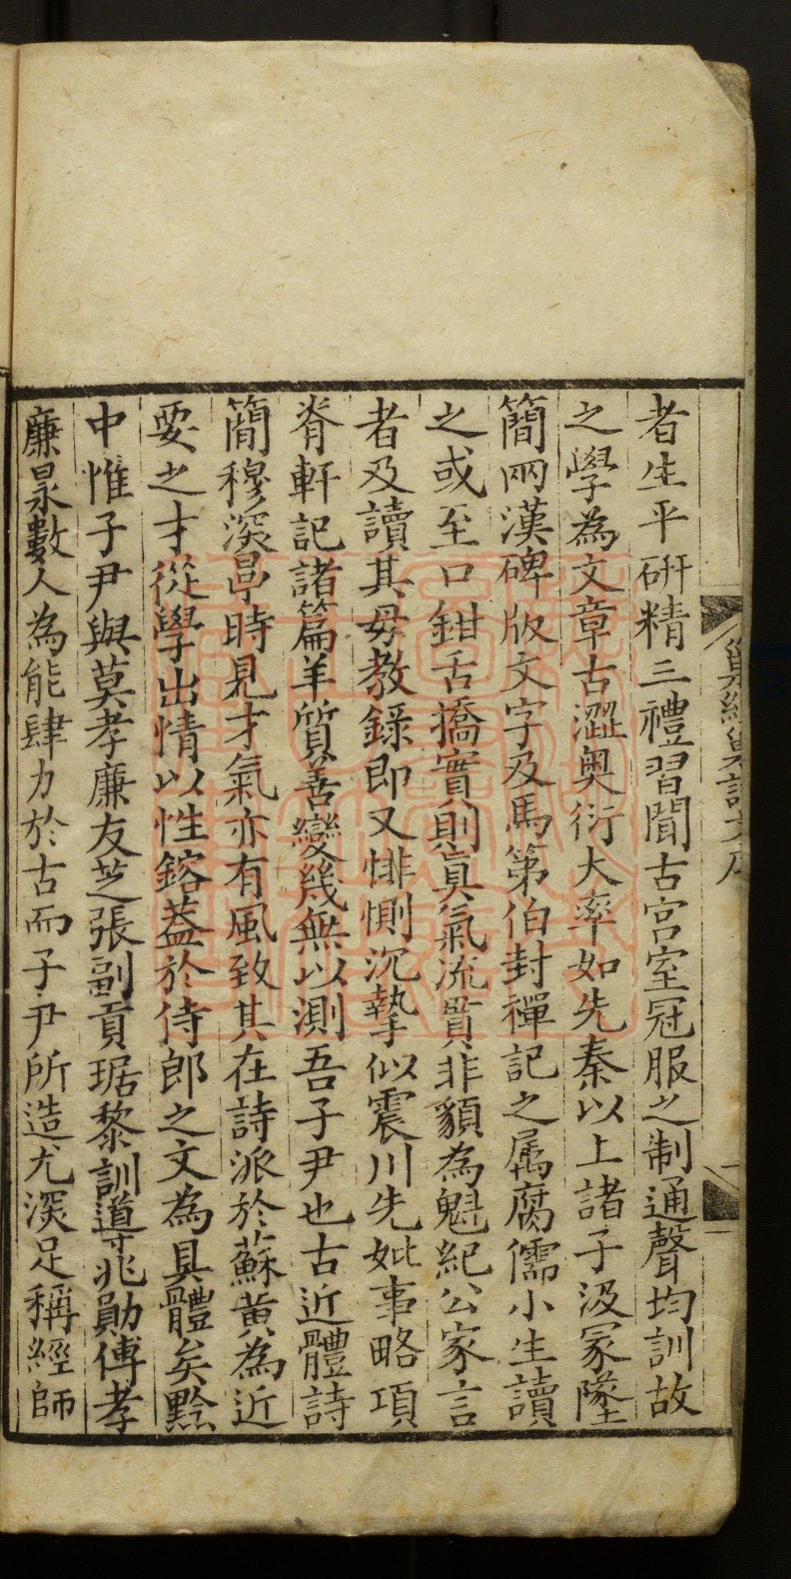 巢經巢詩文序
者生平研精三禮習聞古宮室冠服之制通聲均訓故
之學為文章古澀奧衍大率如先秦以上諸子汲冢墜
簡兩漢碑版文字及馬第伯封禪記之属腐儒小生讀
之或至口鉗舌撟實則真氣流貫非貌為魁紀公家言
者及讀其母教錄即又悱惻沉摯似震川先妣事略項
脊軒記諸篇羊質善變幾無以測吾子尹也古近體詩
簡穆深𩫖時見才氣亦有風致其在詩派於蘇黃為近
要之才從學出情以性鎔蓋於侍郎之文為具體矣黔
中惟子尹與莫孝廉友芝張副貢琚黎訓導兆勛傅孝
廉㫤數人為能肆力於古而子尹所造尤深足稱經師